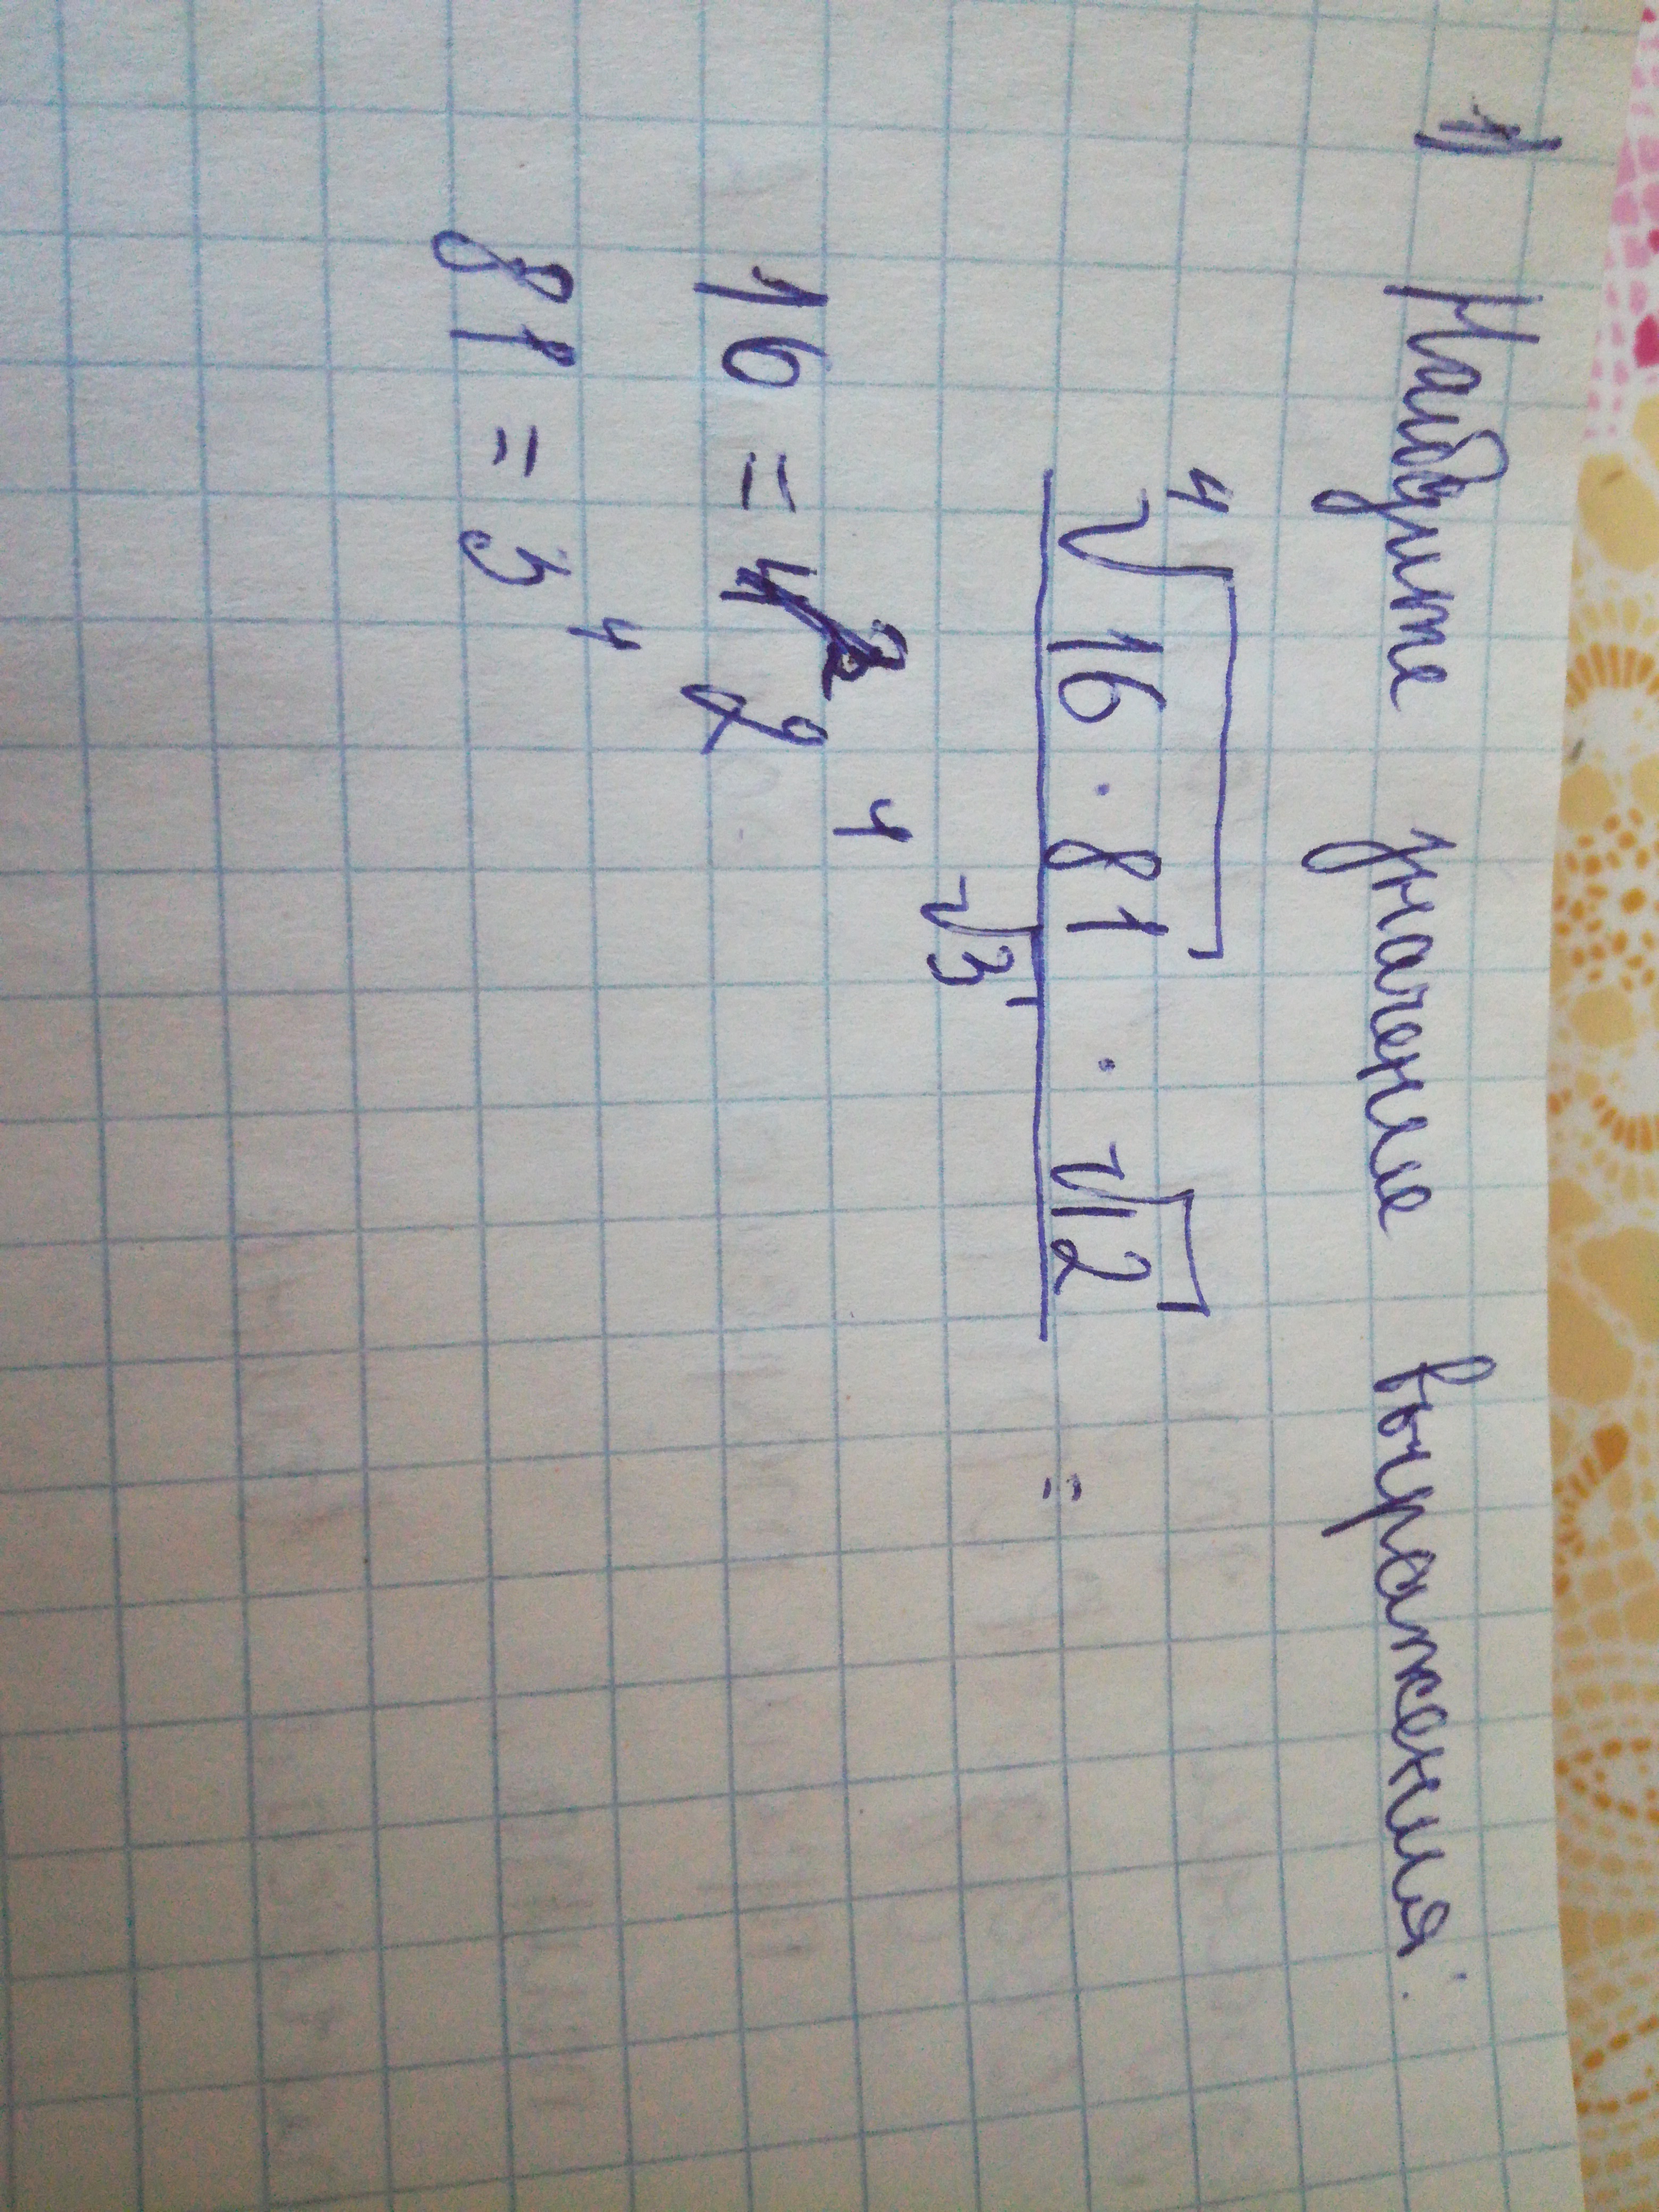 1) Найдите значение выражения:
⁴√(16 · 81) · √12 =
√3
16 = 2⁴
81 = 3⁴